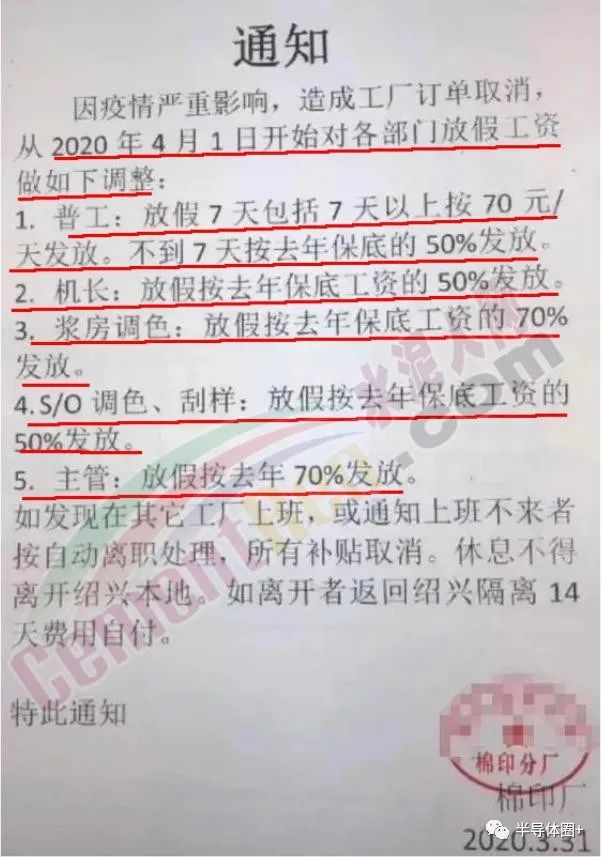 通知
因疫情严重影响，造成工厂订单取消，
从 2020 年 4 月 1 日开始对各部门放假工资
做如下调整：
1. 普工：放假 7 天包括 7 天以上按 70 元/
天发放。不到 7 天按去年保底的 50%发放。
2. 机长：放假按去年保底工资的 50%发放。
3. 浆房调色：放假按去年保底工资的 70%
发放。
4.S/O 调色、刮样：放假按去年保底工资的
50%发放。
5. 主管：放假按去年 70%发放。
如发现在其它工厂上班，或通知上班不来者
按自动离职处理，所有补贴取消。休息不得
离开绍兴本地。如离开者返回绍兴隔离 14
天费用自付。
特此通知
棉印分厂
棉印厂
2020.3.31
半导体圈+
水泥人网
Cementren.com